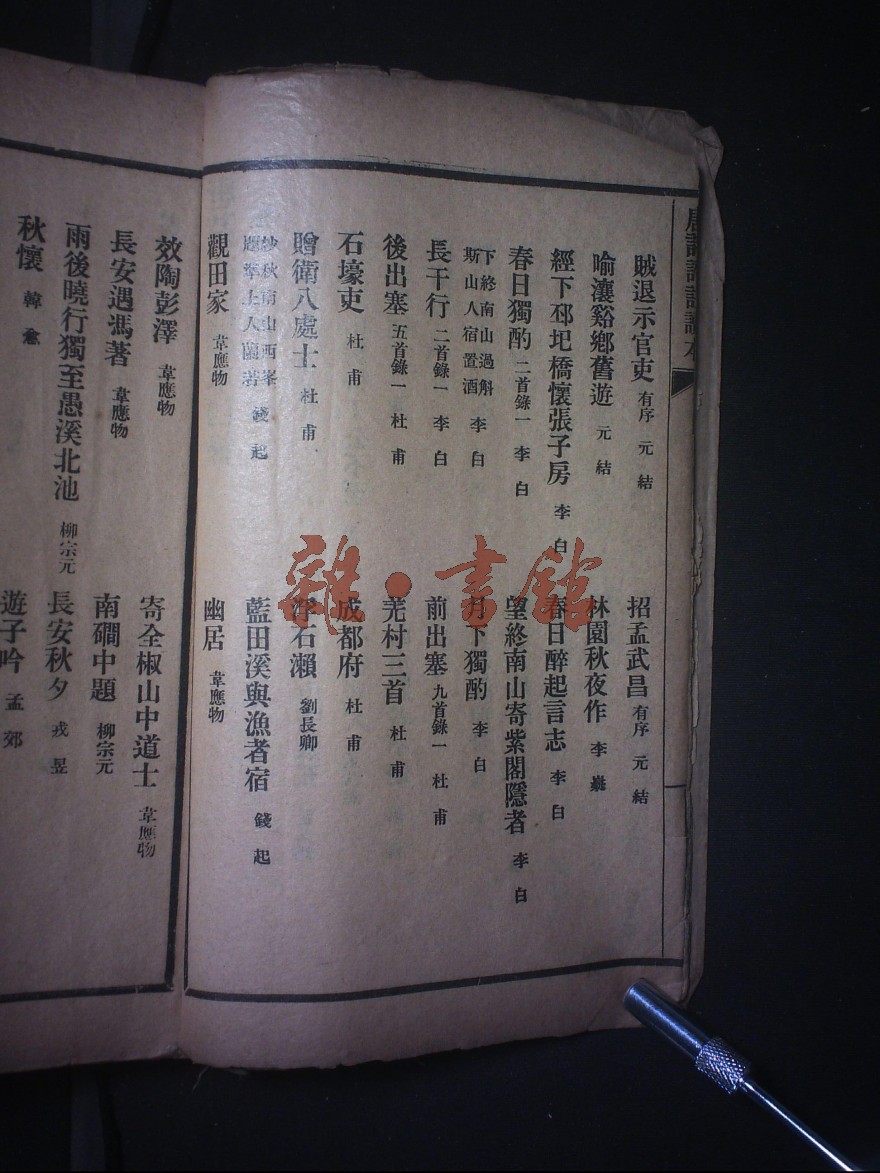 唐詩評註讀本
賊退示官吏 有序 元結
招孟武昌 有序 元結
喻瀼谿鄉舊遊 元結
林園秋夜作 李嶷
經下邳圯橋懷張子房 李白
春日醉起言志 李白
春日獨酌 二首錄一 李白
望終南山寄紫閣隱者 李白
下終南山過斛
斯山人宿置酒 李白
月下獨酌 李白
長干行 二首錄一 李白
前出塞 九首錄一 杜甫
後出塞 五首錄一 杜甫
羌村三首 杜甫
石壕吏 杜甫
成都府 杜甫
贈衛八處士 杜甫
浮石瀨 劉長卿
杪秋南山西峯
題準上人蘭若 錢起
藍田溪與漁者宿 錢起
觀田家 韋應物
幽居 韋應物
效陶彭澤 韋應物
寄全椒山中道士 韋應物
長安遇馮著 韋應物
南磵中題 柳宗元
雨後曉行獨至愚溪北池 柳宗元
長安秋夕 戎昱
秋懷 韓愈
遊子吟 孟郊
雜·書館